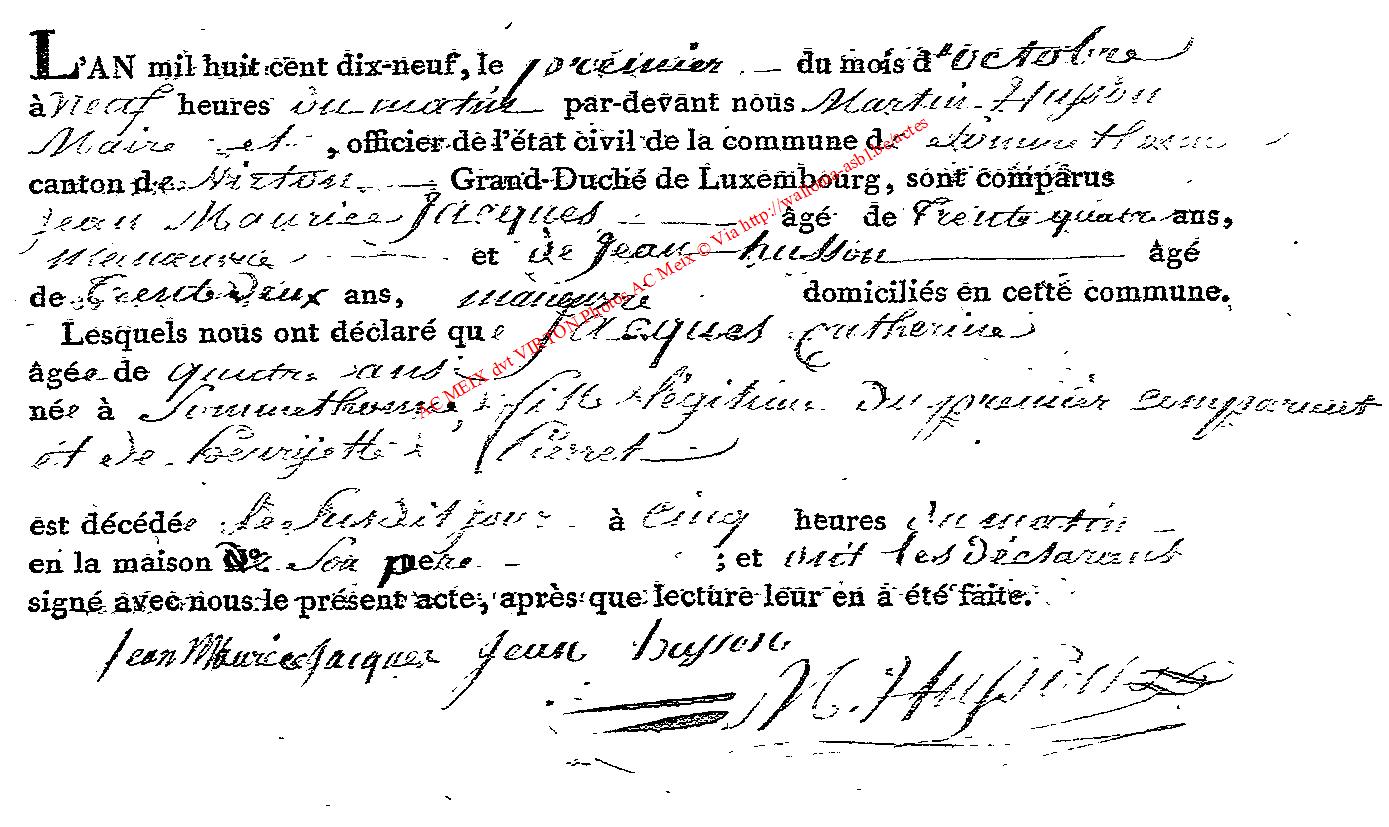 L'AN mil huit cent dix-neuf, le premier du mois d'octobre
à Neuf heures du matin par-devant nous Martin Husson
Maire et , officier de l'état civil de la commune de Sommethonne
canton de Virton Grand-Duché de Luxembourg, sont comparus
Jean Maurice Jacques âgé de Trente quatre ans,
manœuvre et de Jean husson âgé
de Trente Deux ans, manœuvre domiciliés en cette commune.
Lesquels nous ont déclaré que Jacques Catherine
âgée de quatre ans
née à Sommethonne, fille légitime du premier comparant
et de henrijette Pierret
est décédée le Susdit jour à cinq heures du matin
en la maison De Son pere ; et ont les Déclarant
signé avec nous le présent acte, après que lecture leur en a été faite.
Jean Maurice Jacques Jean husson
M. Husson
AC MEIX dvt VIRTON Photos A-C Meix © Via http://wallonia-asbl.be/actes